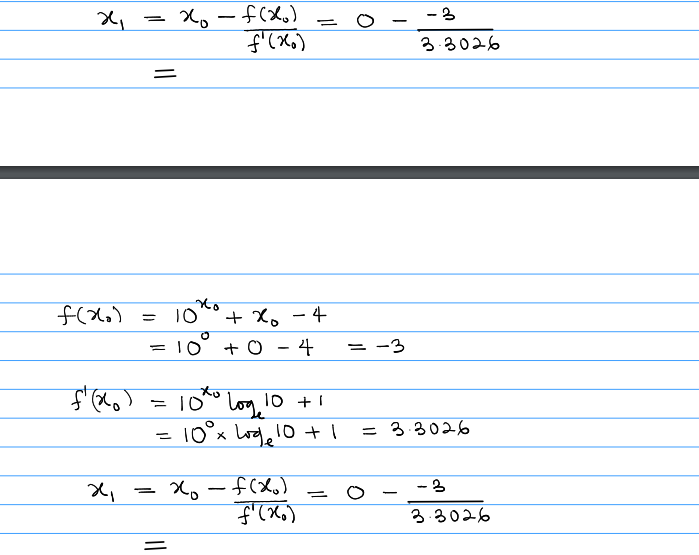 x₁ = x₀ - f(x₀)/f'(x₀) = 0 - -3/3.3026
=
f(x₀) = 10^x₀ + x₀ - 4
= 10⁰ + 0 - 4 = -3
f'(x₀) = 10^x₀ logₑ10 + 1
= 10⁰ × logₑ10 + 1 = 3.3026
x₁ = x₀ - f(x₀)/f'(x₀) = 0 - -3/3.3026
=